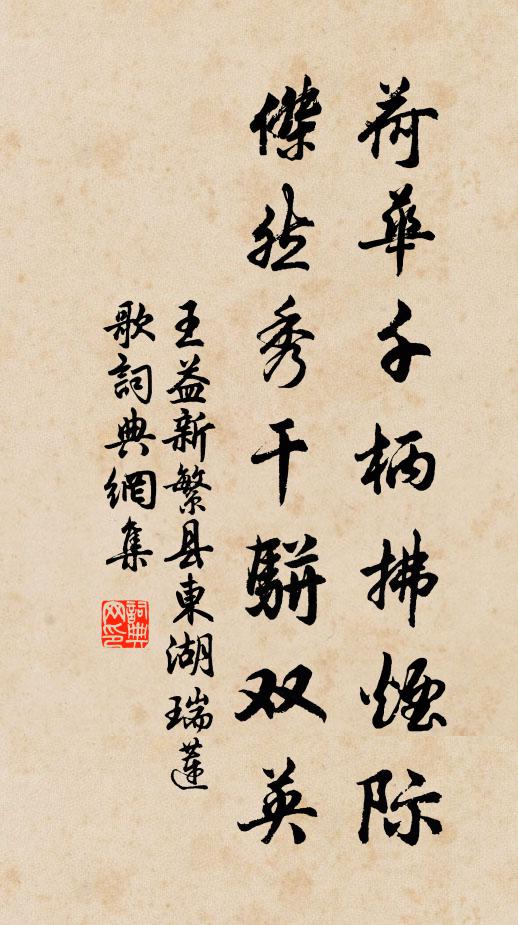 荷華千柄拂煙际
傑然秀干駢双英
王益新繁县東湖瑞蓮
歌詞典網集
詞典
网印